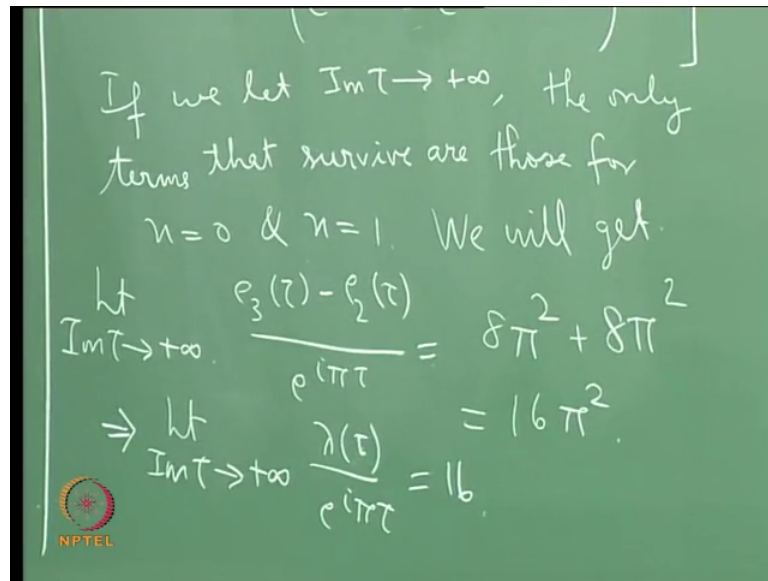 If we let Im τ → +∞, the only
terms that survive are those for
n=0 & n=1. We will get
lt Im τ → +∞ (e₃(τ) - e₂(τ)) / e^{iπτ} = 8π² + 8π²
= 16π².
⇒ lt Im τ → +∞ λ(τ) / e^{iπτ} = 16.
NPTEL